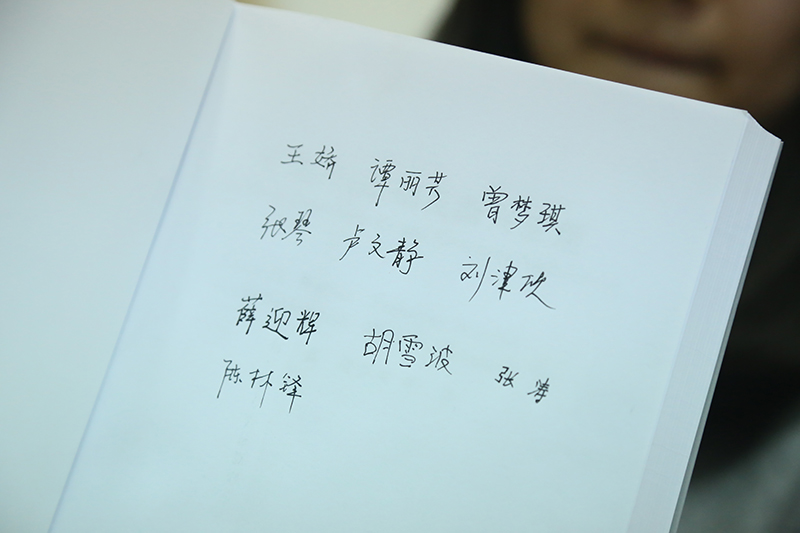 王娇 谭丽芳 曾梦琪
张琴 卢文静 刘津
薛迎辉 胡雪波 张涛
陈林锋